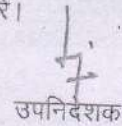 रे।
उपनिदेशक